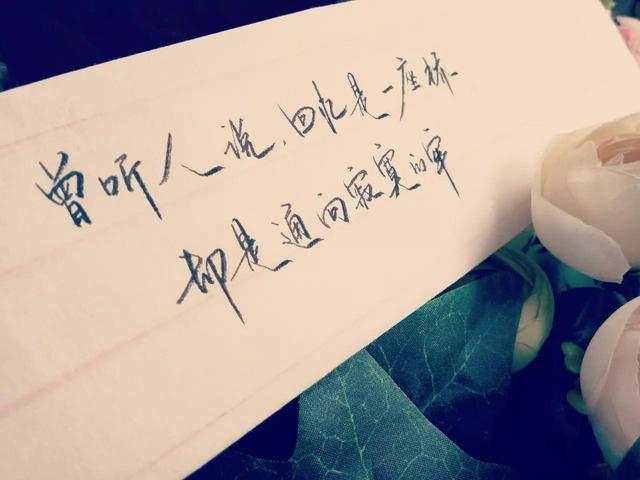 曾听人说,回忆是一座桥
却是通向寂寞的牢